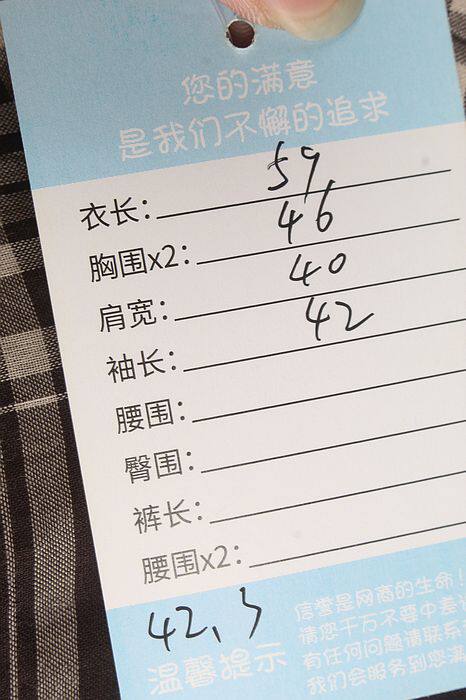 您的满意
是我们不懈的追求
衣长： 59
胸围x2： 46
肩宽： 40
袖长： 42
腰围：
臀围：
裤长：
腰围x2：
42、3
温馨提示
信誉是网商的生命！
请您千万不要中差
有任何问题请联系
我们会服务到您满